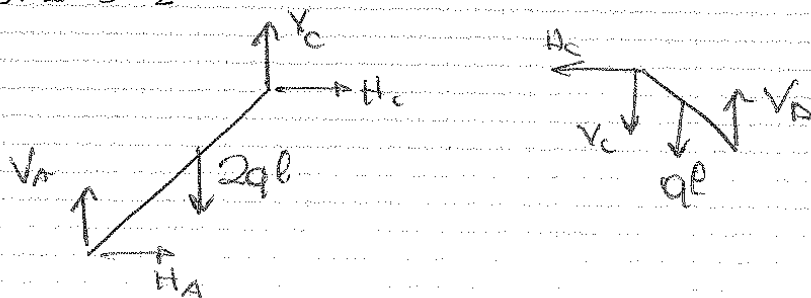 V_C
H_C
V_A
2ql
H_A
H_C
V_C
ql